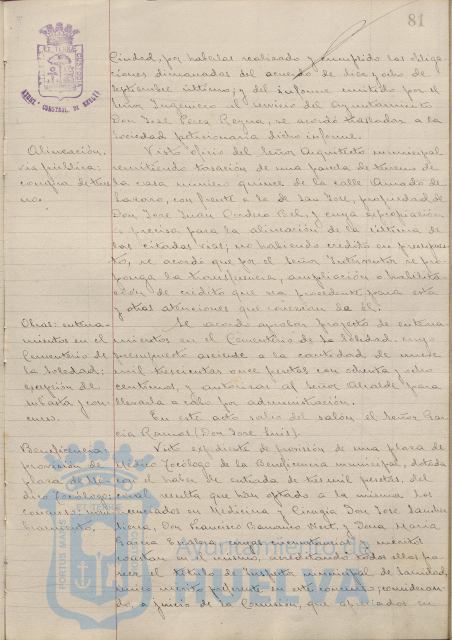 81
Ciudad, por haberlas realizado y cumplido las obliga-
ciones dimanadas del acuerdo de diez y ocho de
septiembre último; y del informe emitido por el
Señor Ingeniero al servicio del Ayuntamiento
Don José Pérez Reyna, se acordó trasladar a la
Sociedad peticionaria dicho informe.
Alineación
vía pública:
compra de terre-
no.
Visto oficio del Señor Arquitecto municipal
remitiendo tasación de una parcela de terreno de
la casa número quince de la calle Amado de
Lázaro, con frente a la de San José, propiedad de
Don José Juan y cuya expropiación
es precisa para la alineación de la última de
las citadas vías; no habiendo crédito en presupues-
to, se acordó que por el Señor Interventor se pro-
ponga la transferencia, ampliación o habilita-
ción de crédito que sea procedente para esta
y otras atenciones que carezcan de él.
Obras: enterra-
mientos en el
Cementerio de
la Soledad:
ejecución de
subasta y con-
curso.
Se acordó aprobar proyecto de enterra-
mientos en el Cementerio de la Soledad, cuyo
presupuesto asciende a la cantidad de nueve
mil trescientas once pesetas con ochenta y ocho
céntimos, y autorizar al Señor Alcalde para
llevarla a cabo por administración.
En este acto salió del salón el Señor Gar-
cía Ramos (Don José Luis).
Beneficencia:
provisión de
plaza de Mé-
dico Tocólogo:
concurso: nom-
bramiento.
Visto expediente de provisión de una plaza de
Médico Tocólogo de la Beneficencia municipal, dotada
con el haber de entrada de tres mil pesetas, del
cual resulta que han optado a la misma los
Licenciados en Medicina y Cirugía Don José Sánchez
Don Francisco y Doña María
García Escalera, cuyas circunstancias y méritos
constan en el mismo, acreditando todos ellos po-
seer el título de Inspector municipal de Sanidad,
único mérito preferente en este concurso; consideran-
do, a juicio de la Comisión, que
PORTUS MARIS
Ayuntamiento de
HUELVA